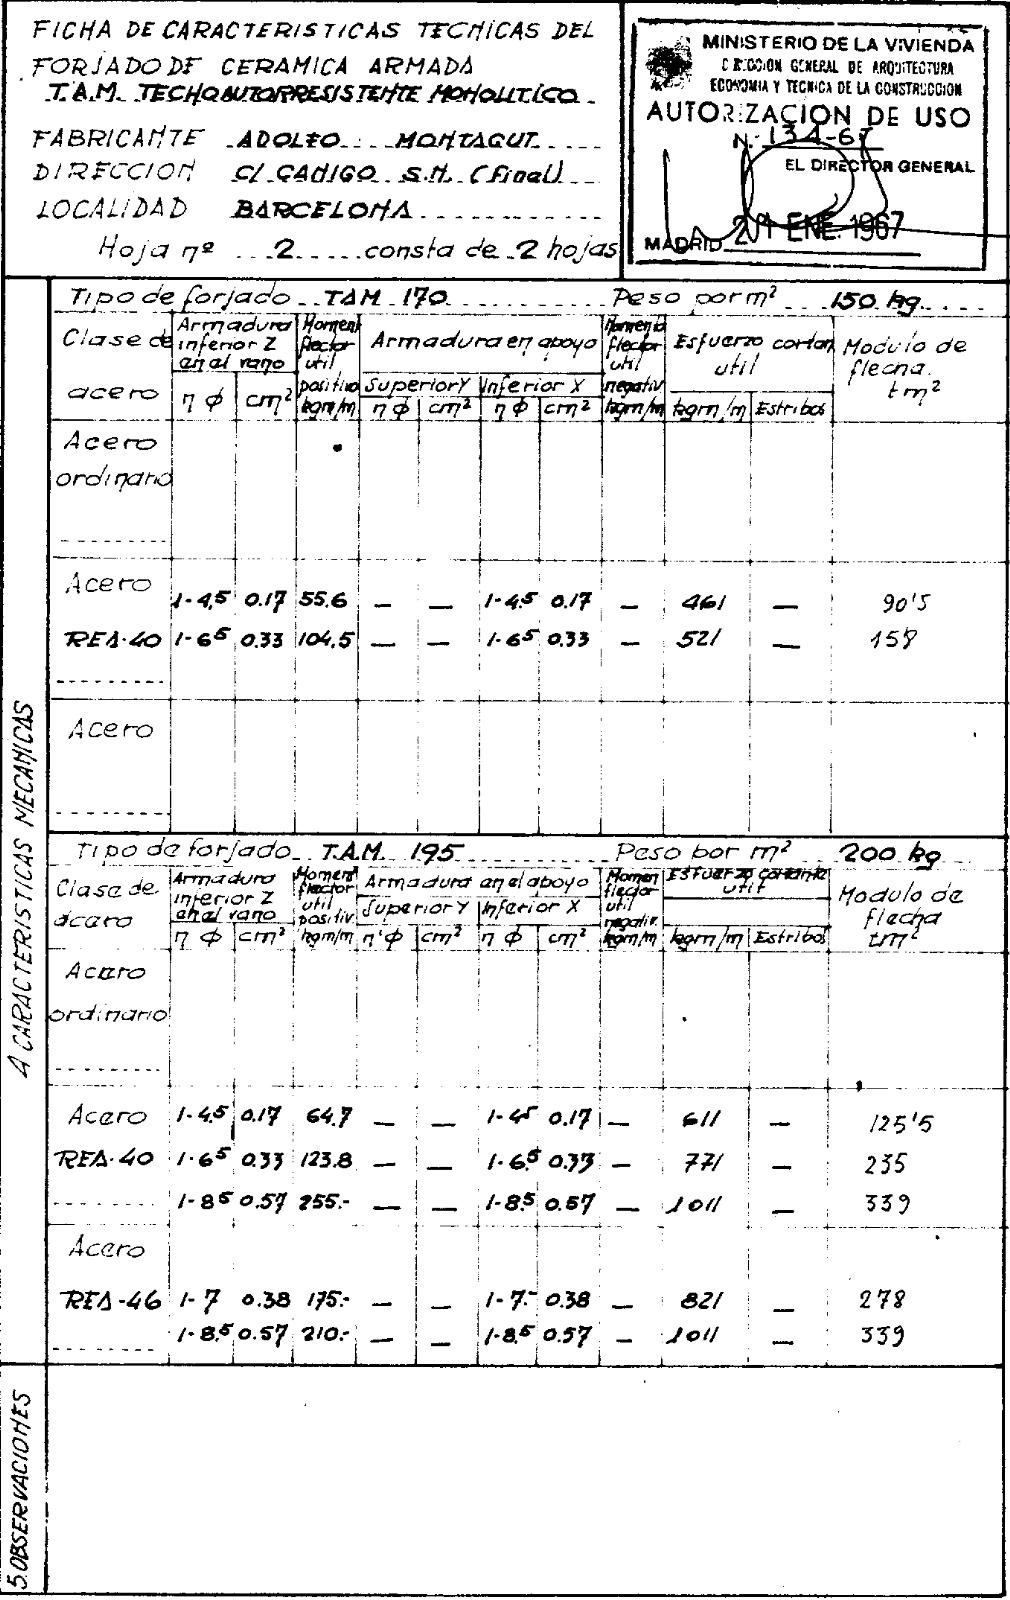 FICHA DE CARACTERISTICAS TECNICAS DEL
FORJADO DE CERAMICA ARMADA
T.A.M. TECHO AUTORRESISTENTE MONOLITICO
FABRICANTE ADOLFO MONTAGUT
DIRECCION C/ CANIGO S.N. (final)
LOCALIDAD BARCELONA
Hoja nº 2 consta de 2 hojas
MINISTERIO DE LA VIVIENDA
DIRECCION GENERAL DE ARQUITECTURA
ECONOMIA Y TECNICA DE LA CONSTRUCCION
AUTORIZACION DE USO
N.º 134-67
EL DIRECTOR GENERAL
MADRID 21 ENE. 1967
A CARACTERISTICAS MECANICAS
Tipo de forjado TAM 170 Peso por m² 150 kg.
Clase de acero
Armadura inferior Z en al vano
η φ cm²
Moment flector util positivo kgm/m
Armadura en apoyo
Superior Y Inferior X
η φ cm² η φ cm²
Momento flector util negativ kgm/m
Esfuerzo cortan util
kgm/m Estribos
Modulo de flecha. tm²
Acero
ordinario
Acero
1-4,5 0.17 55.6 — — 1-4.5 0.17 — 461 — 90'5
REA-40 1-6⁵ 0.33 104.5 — — 1-6.5 0.33 — 521 — 158
Acero
Tipo de forjado T.A.M. 195 Peso por m² 200 kg
Clase de acero
Armadura inferior Z en al vano
η φ cm²
Moment flector util positiv kgm/m
Armadura en el apoyo
Superior Y Inferior X
η φ cm² η φ cm²
Momen flector util negativ kgm/m
Esfuerzo cortante util
kgm/m Estribos
Modulo de flecha tm²
Acero
ordinario
Acero 1-4.5 0.17 64.7 — — 1-4⁵ 0.17 — 611 — 125'5
REA-40 1-6⁵ 0.33 123.8 — — 1-6.5 0.33 — 771 — 235
1-8⁵ 0.57 255.- — — 1-8.5 0.57 — 1011 — 339
Acero
REA-46 1-7 0.38 175.- — — 1-7.- 0.38 — 821 — 278
1-8.5 0.57 210.- — — 1-8.5 0.57 — 1011 — 339
5.OBSERVACIONES